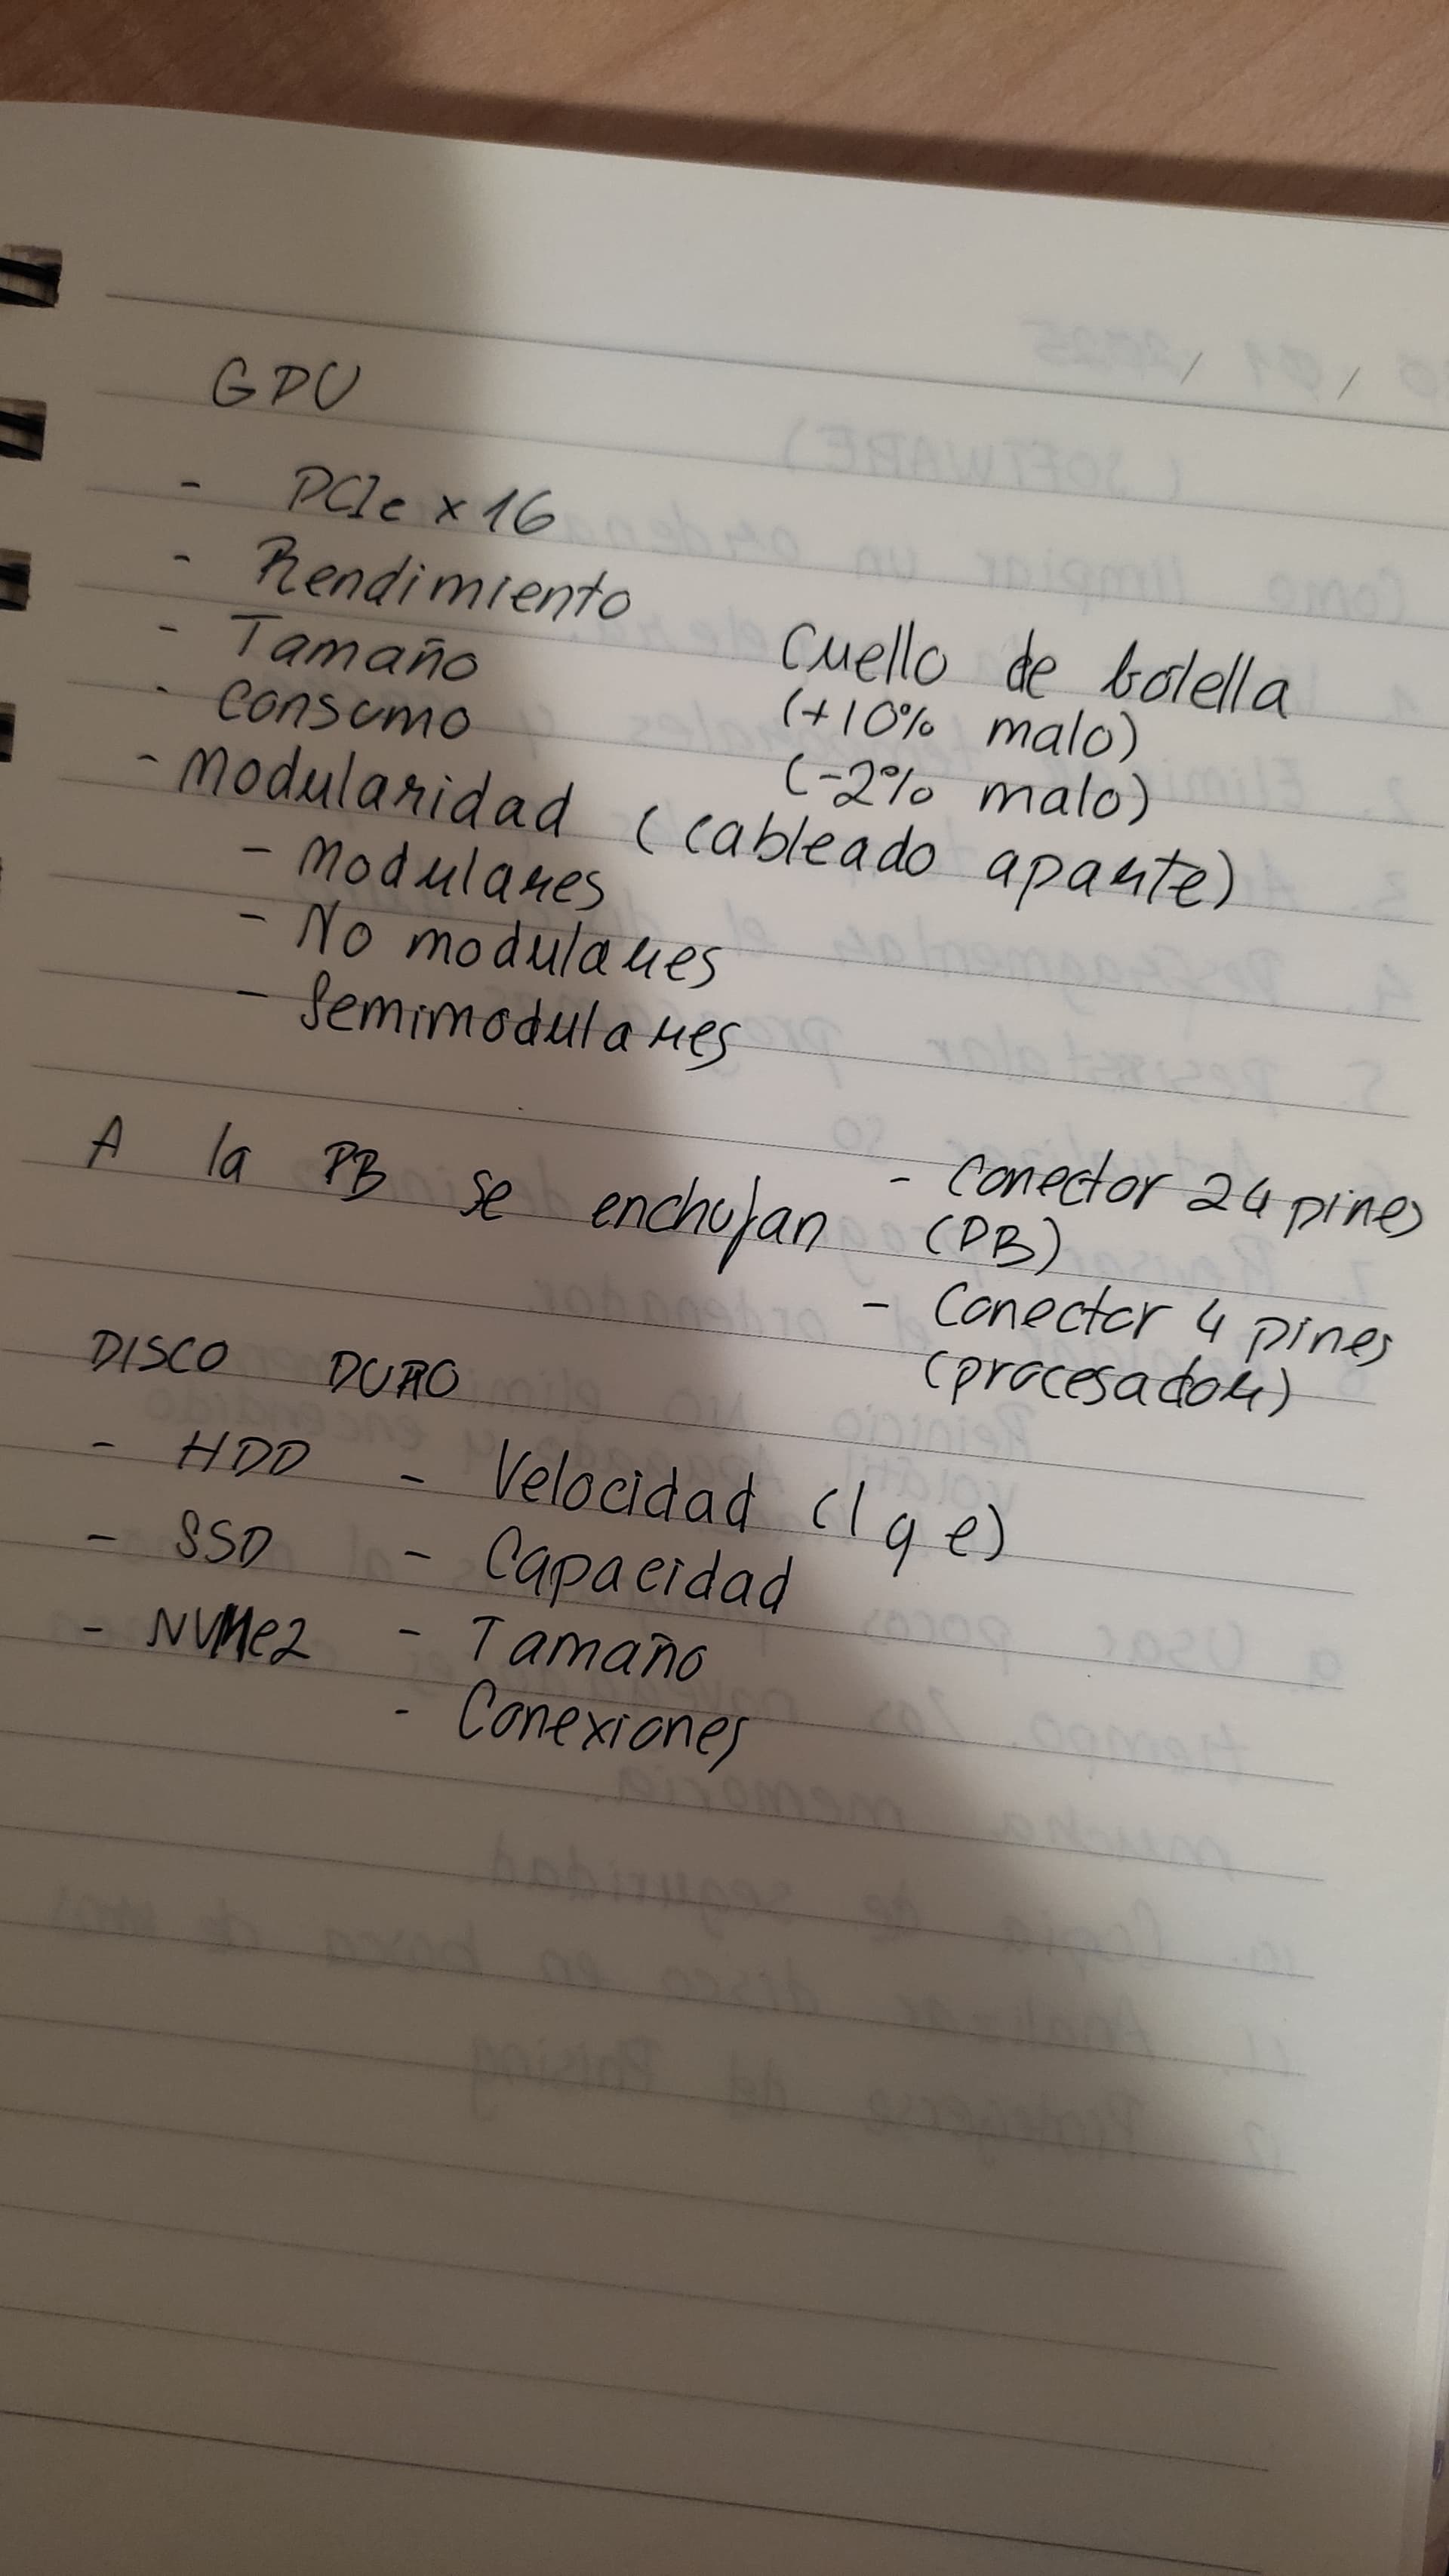 GPU
- PCIe x16
- Rendimiento
- Tamaño
- Consumo
Cuello de botella
(+10% malo)
(-2% malo)
- Modularidad (cableado aparte)
- Modulares
- No modulares
- Semimodulares
A la PB se enchufan
- Conector 24 pines
(PB)
- Conector 4 pines
(procesador)
DISCO DURO
- HDD
- SSD
- NVMe2
- Velocidad (l y e)
- Capacidad
- Tamaño
- Conexiones